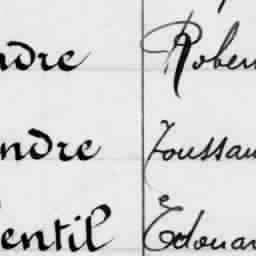 ndre Rober
ndre Toussau
entil Edouar